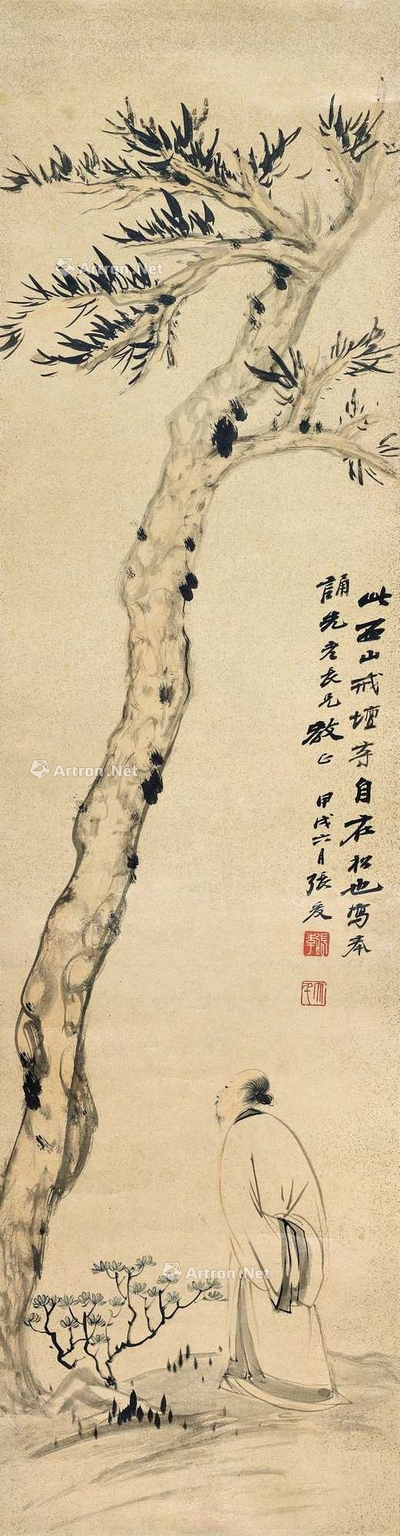 此西山戒壇寺自在松也寫奉
誦先老長兄教正
甲戌六月張爰
張季
大千
Artron.Net
Artron.Net
Artron.Net